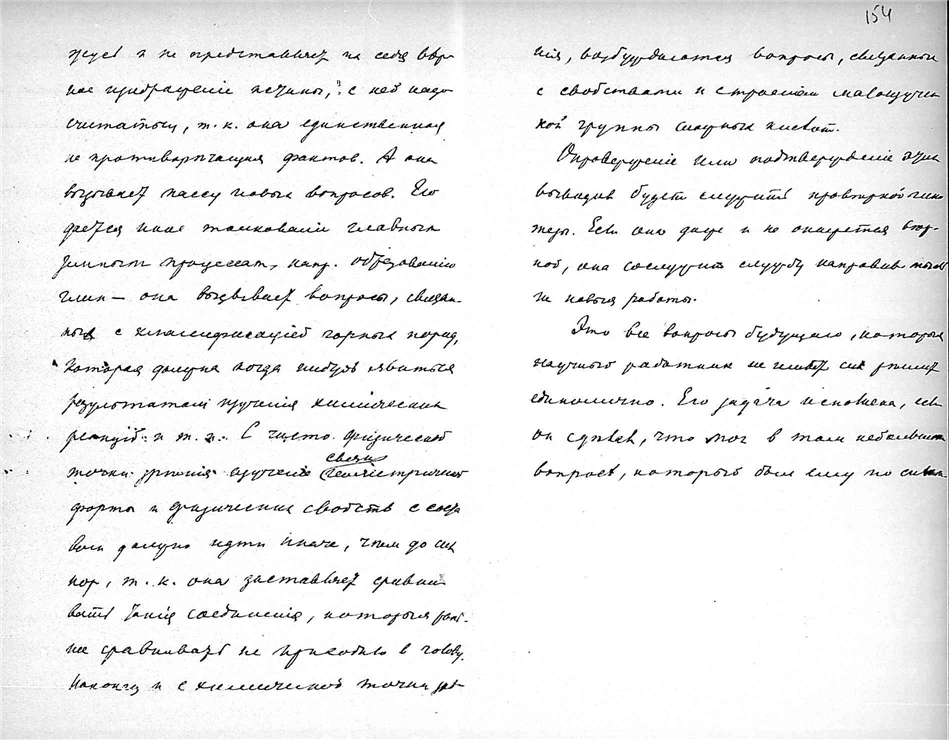 154
и не представляет из себя вѣр-
ное изображеніе истины, с ней надо
считаться, т. к. она единственная
не противорѣчащая фактов. А она
вызывает массу новых вопросов. Ею
дается иное толкованіе главным
земным процессам, напр. образованію
глин — она вызывает вопросы, связан-
ные с классификаціей горных пород,
которая должна когда нибудь явиться
результатом изученія химических
реакцій и т. д. С чисто физической
точки зрѣнія изученіе связи геометрической
формы и физических свойств с соста
вом должно идти иначе, чѣм до сих
пор, т. к. она заставляет сравни-
вать такія соединенія, которыя рань-
ше сравнивать не приходило в голову.
Наконец и с химической точки зрѣ-
нія, возбуждаются вопросы, связанные
с свойствами и строеніем малоизучен
ной группы сложных кислот.
Опроверженіе или подтвержденіе этих
выводов будет служить провѣркой гипо
тезы. Если она даже и не окажется вѣр-
ной, она сослужит службу направив мысль
на новыя работы.
Это все вопросы будущаго, которые
научный работник не может сам рѣшить
единолично. Его задача исполнена, если
он сдѣлал, что мог в том небольшом
вопросѣ, который был ему по силам